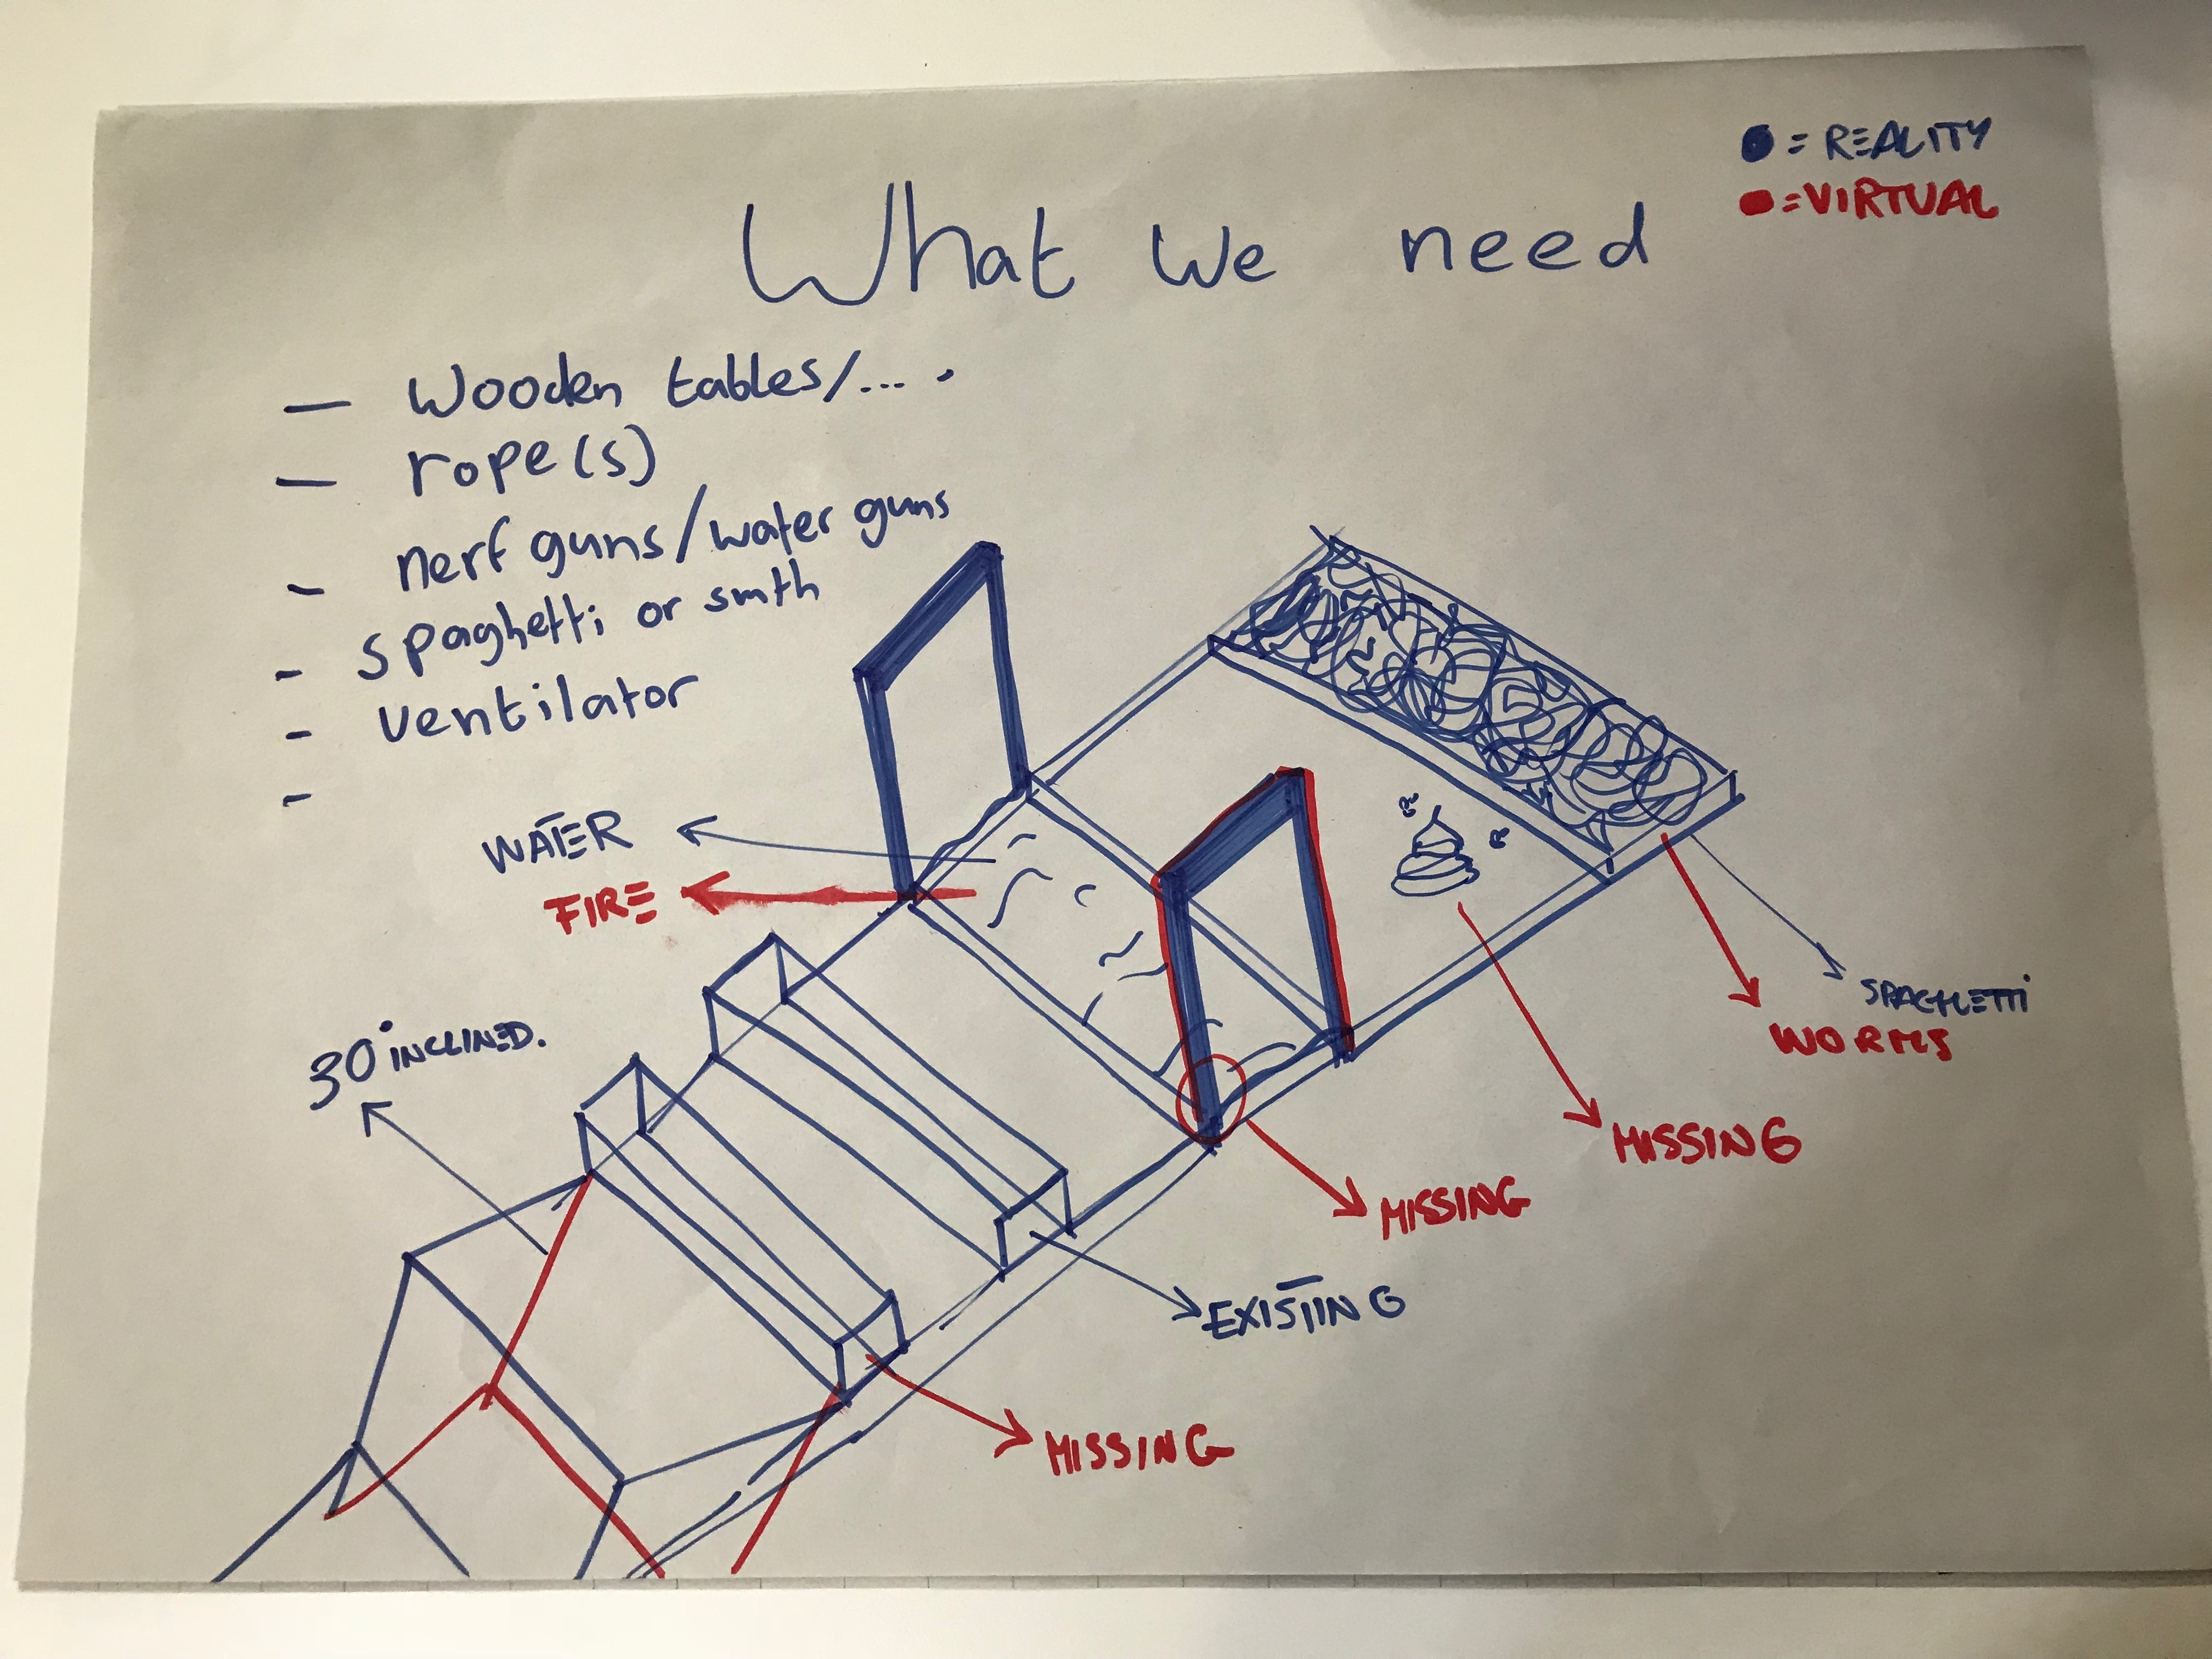 ● = REALITY
● = VIRTUAL
What we need
— Wooden tables/... .
— rope(s)
- nerf guns/water guns
- spaghetti or smth
- ventilator
-
WATER
FIRE
30° INCLINED.
SPAGHETTI
WORMS
MISSING
MISSING
EXISTING
MISSING